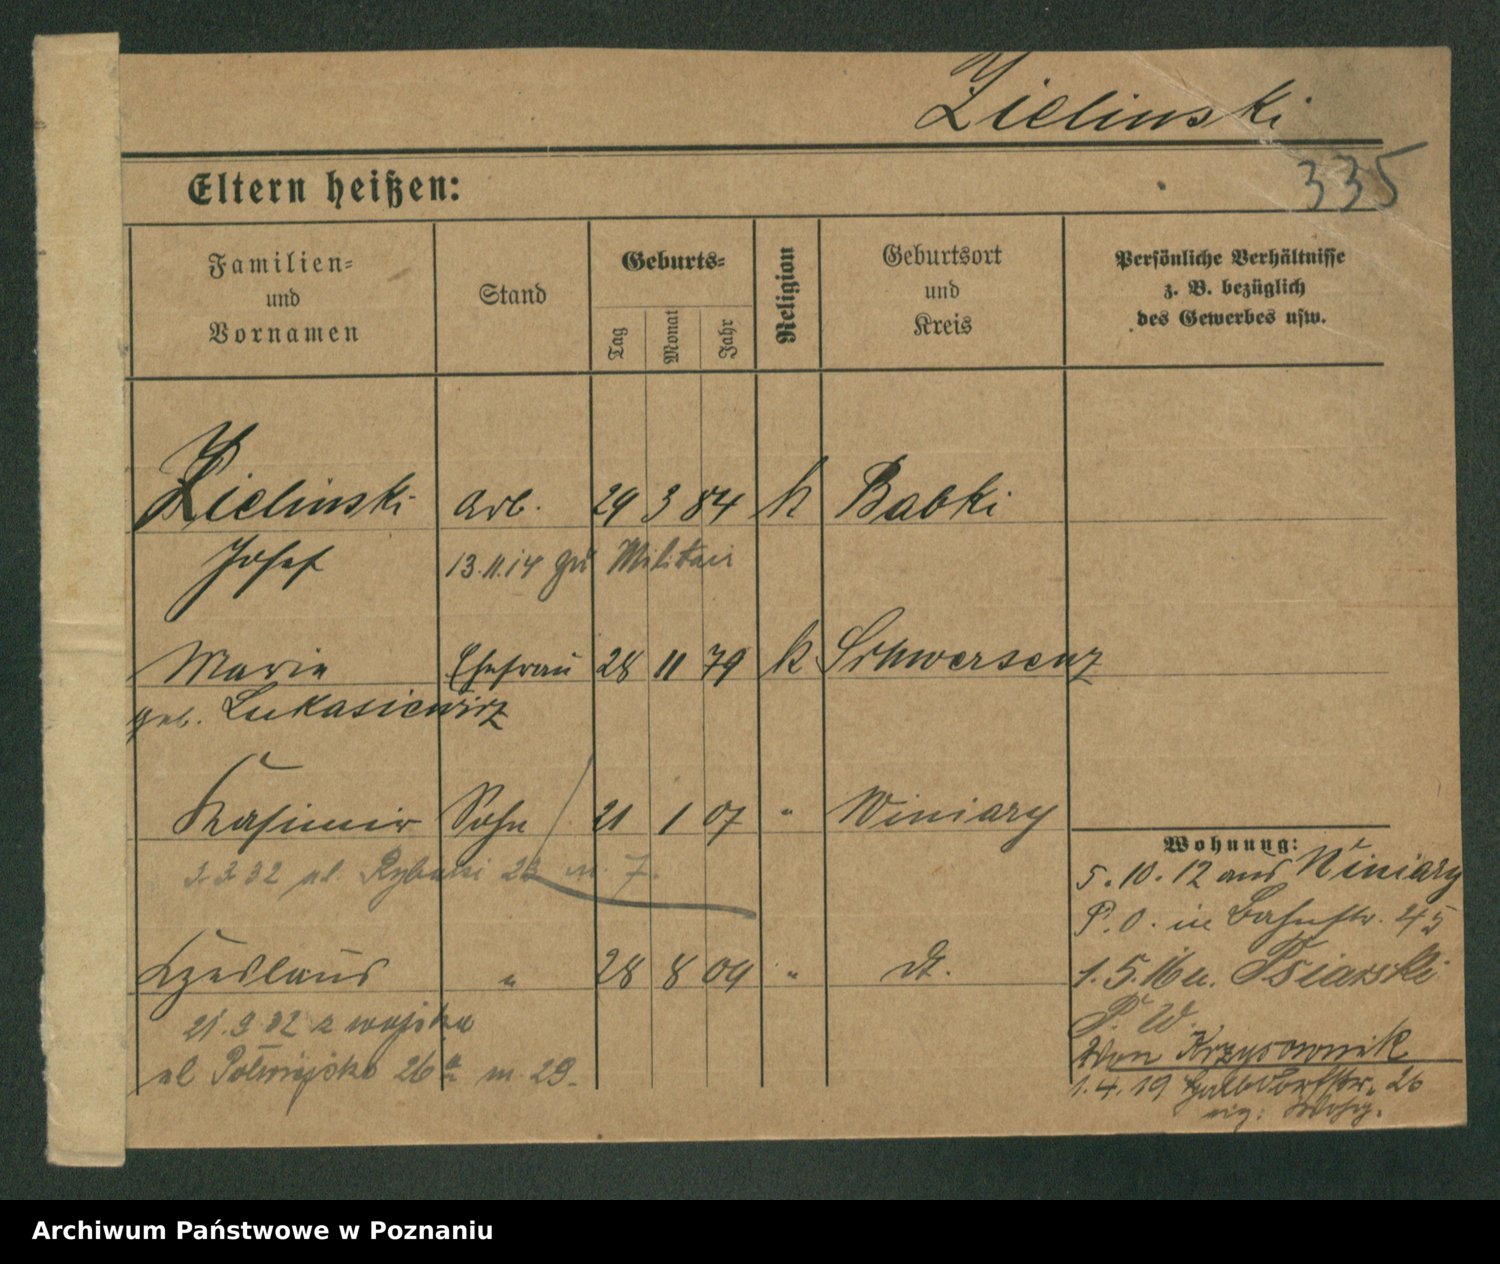 Zielinski
335
Eltern heißen:
Familien=
und
Vornamen
Stand
Geburts=
Tag
Monat
Jahr
Religion
Geburtsort
und
Kreis
Persönliche Verhältnisse
z. B. bezüglich
des Gewerbes usw.
Zielinski Arb. 29 3 84 k Babki
Josef 13.11.14 zu Militair
Marie Ehefrau 28 11 79 k Schwersenz
geb. Lukasiewicz
Kasimir Sohn 21 1 07 " Winiary
3.3.32 ul. Rybaki 23 m. 7.
Czeslaus " 28 8 09 " dt.
21.9.32 z wojska
ul Półwiejska 26a m. 29.
Wohnung:
5.10.12 aus Winiary
P.O. in Bahnstr. 45
1.5.16 n. Psiarski
P. W.
Von Krzysownik
1.4.19 Halbdorfstr. 26
eig. Wohg.
Archiwum Państwowe w Poznaniu